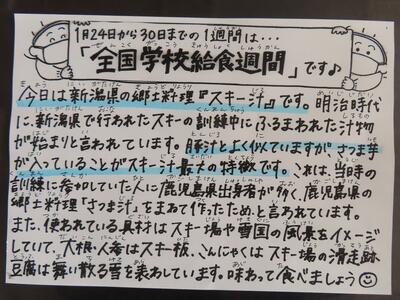 1月24日から30日までの1週間は…
「全国学校給食週間」です♪
今日は新潟県の郷土料理『スキー汁』です。明治時代
に、新潟県で行われたスキーの訓練中にふるまわれた汁物
が始まりと言われています。豚汁とよく似ていますが、さつま芋
が入っていることがスキー汁最大の特徴です。これは、当時の
訓練に参加していた人に鹿児島県出身者が多く、鹿児島県の
郷土料理「さつま汁」をまねて作ったためと言われています。
また、使われている具材はスキー場や雪国の風景をイメージ
していて、大根・人参はスキー板、こんにゃくはスキー場の滑走跡、
豆腐は舞い散る雪を表わしています。味わって食べましょう